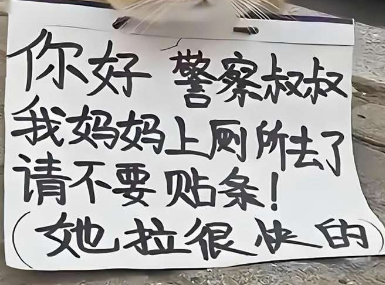 你好 警察叔叔
我妈妈上厕所去了
请不要贴条!
(她拉很快的)